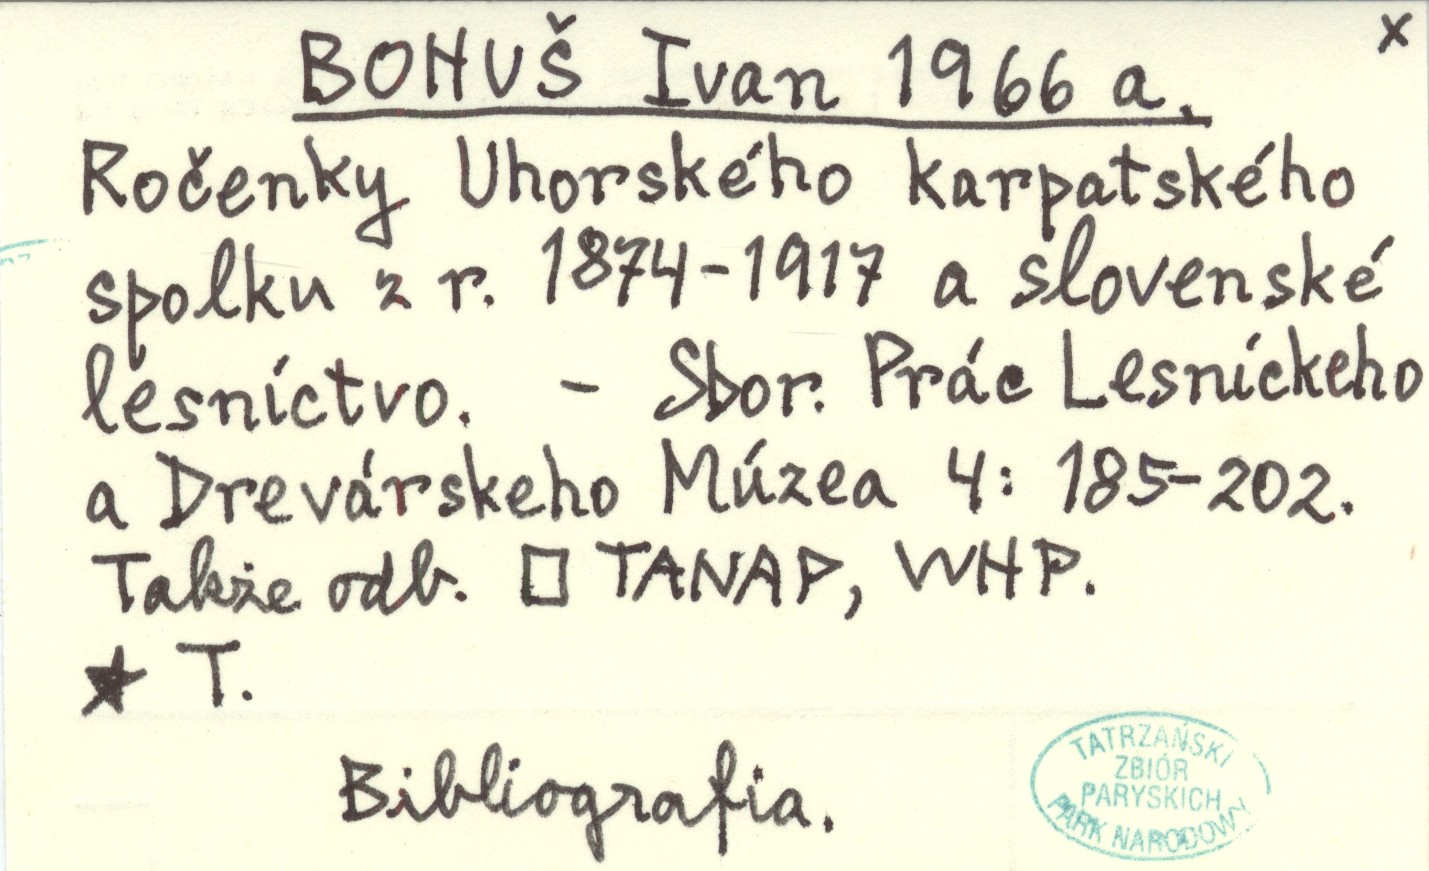 x
BOHUŠ Ivan 1966 a.
Ročenky Uhorského karpatského
spolku z r. 1874-1917 a slovenské
lesníctvo. - Sbor. Prác Lesníckeho
a Drevárskeho Múzea 4: 185-202.
Także odb. □ TANAP, WHP.
★ T.
Bibliografia.
TATRZAŃSKI
ZBIÓR
PARYSKICH
PARK NARODOWY